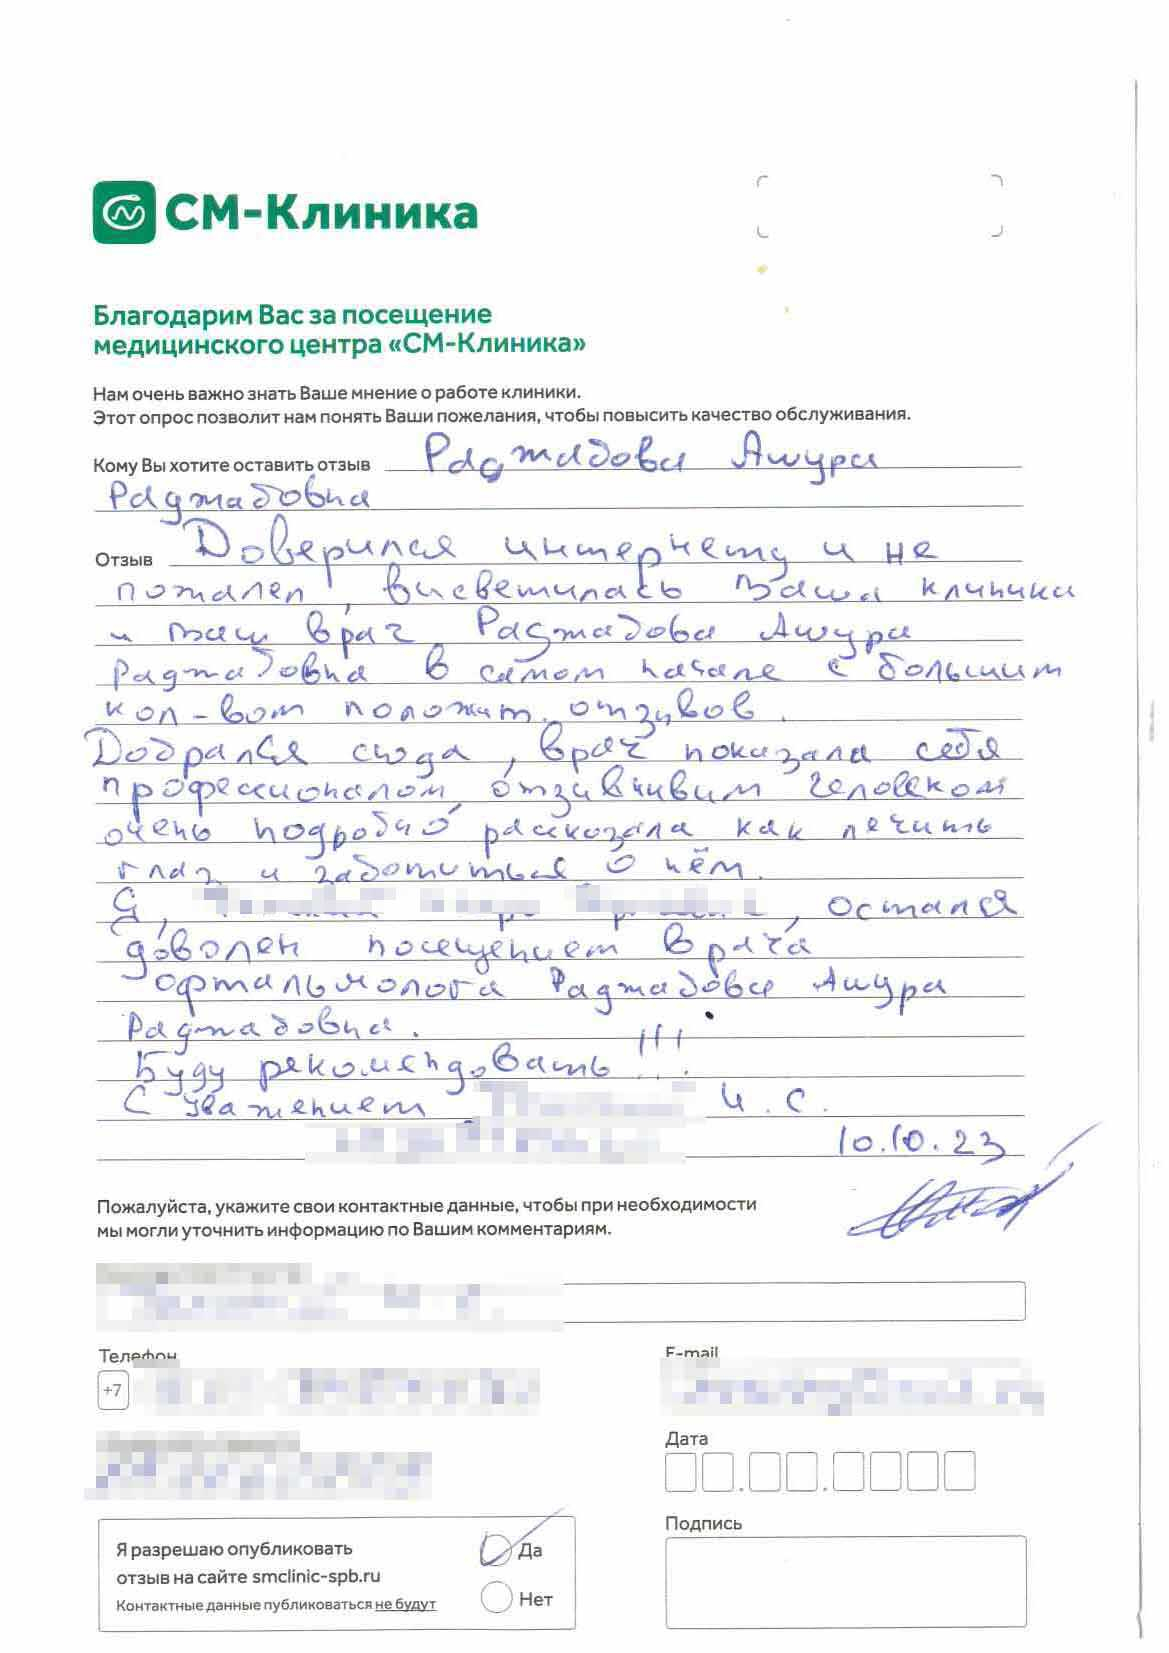 СМ-Клиника
Благодарим Вас за посещение
медицинского центра «СМ-Клиника»
Нам очень важно знать Ваше мнение о работе клиники.
Этот опрос позволит нам понять Ваши пожелания, чтобы повысить качество обслуживания.
Кому Вы хотите оставить отзыв Раджабова Ашура
Раджабовна
Отзыв Доверился интернету и не
пожалел, высветилась Ваша клиника
и Ваш врач Раджабова Ашура
Раджабовна в самом начале с большим
кол-вом полож и т. отзывов.
Добрался сюда, врач показала себя
профессионалом, отзывчивым человеком
очень подробно рассказала как лечить
глаз и заботиться о нём.
Я, , остался
доволен посещением врача
офтальмолога Раджабова Ашура
Раджабовна.
Буду рекомендовать!!!
С уважением И.С.
10.10.23
Пожалуйста, укажите свои контактные данные, чтобы при необходимости
мы могли уточнить информацию по Вашим комментариям.
Телефон E-mail
+7
Дата
Подпись
Я разрешаю опубликовать Да
отзыв на сайте smclinic-spb.ru
Контактные данные публиковаться не будут Нет